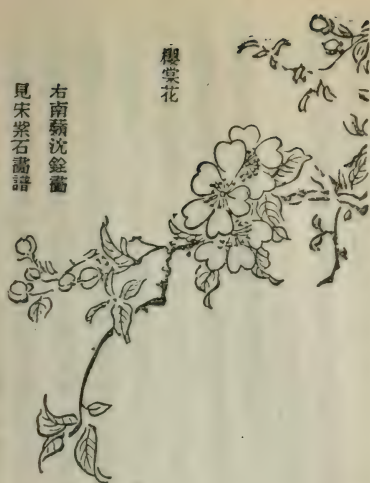 櫻棠花
右南蘋沈銓畫
見宋紫石畫譜